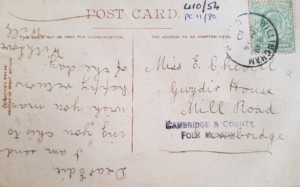 POST CARD.
410/54
PC 11/80
THIS SPACE MAY BE USED FOR COMMUNICATION
THE ADDRESS TO BE WRITTEN HERE
WILLINGHAM
Miss E
Gwydir House
Mill Road
Cambridge
CAMBRIDGE & COUNTY
FOLK MUSEUM
Dear Edie
I am send
ing you this to
wish you many
happy returns
of the day